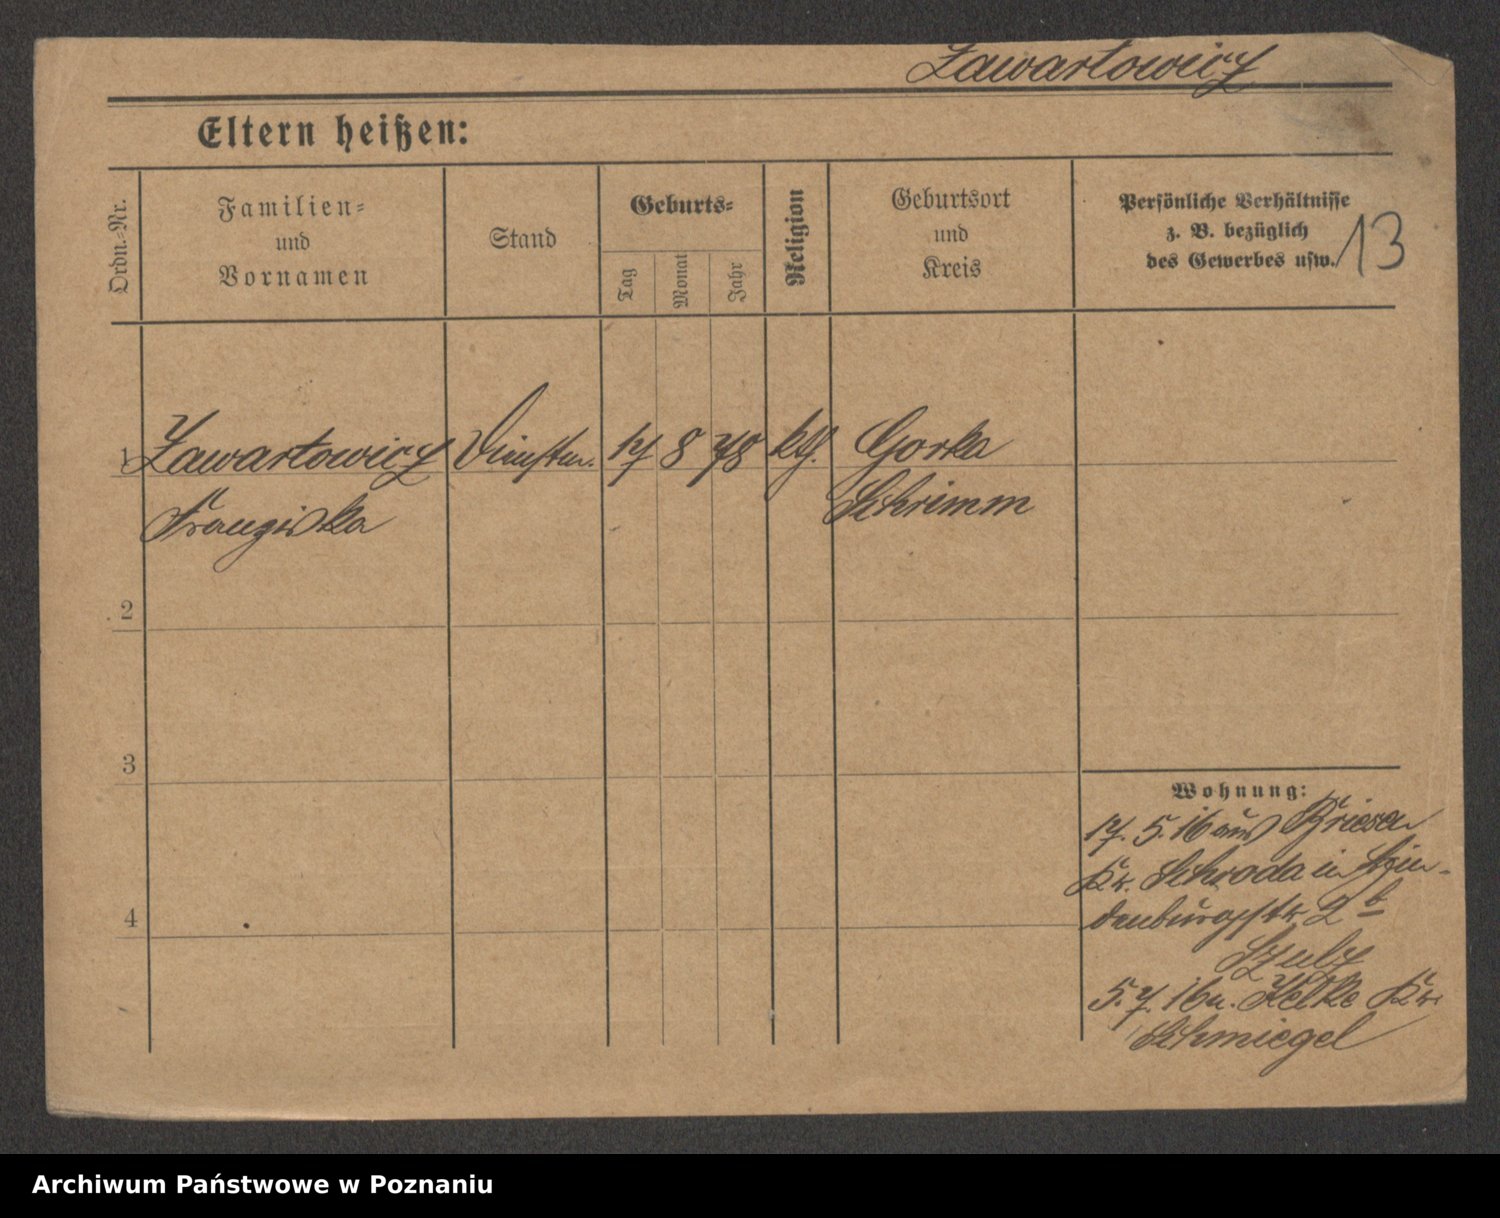 Zawartowicz
Eltern heißen:
Ordn.-Nr.
Familien-
und
Vornamen
Stand
Geburts-
Tag
Monat
Jahr
Religion
Geburtsort
und
Kreis
Persönliche Verhältnisse
z. B. bezüglich
des Gewerbes usw.
13
1 Zawartowicz 17 8 78 kth. Gorka
Franziska Schrimm
2
3
4
Wohnung:
17. 5. 16 aus Briesen
Kr. Schroda in Hin-
denburgstr. 2 b
Szulz
5. 7. 16 n. Kelke Kr.
Schmiegel
Archiwum Państwowe w Poznaniu